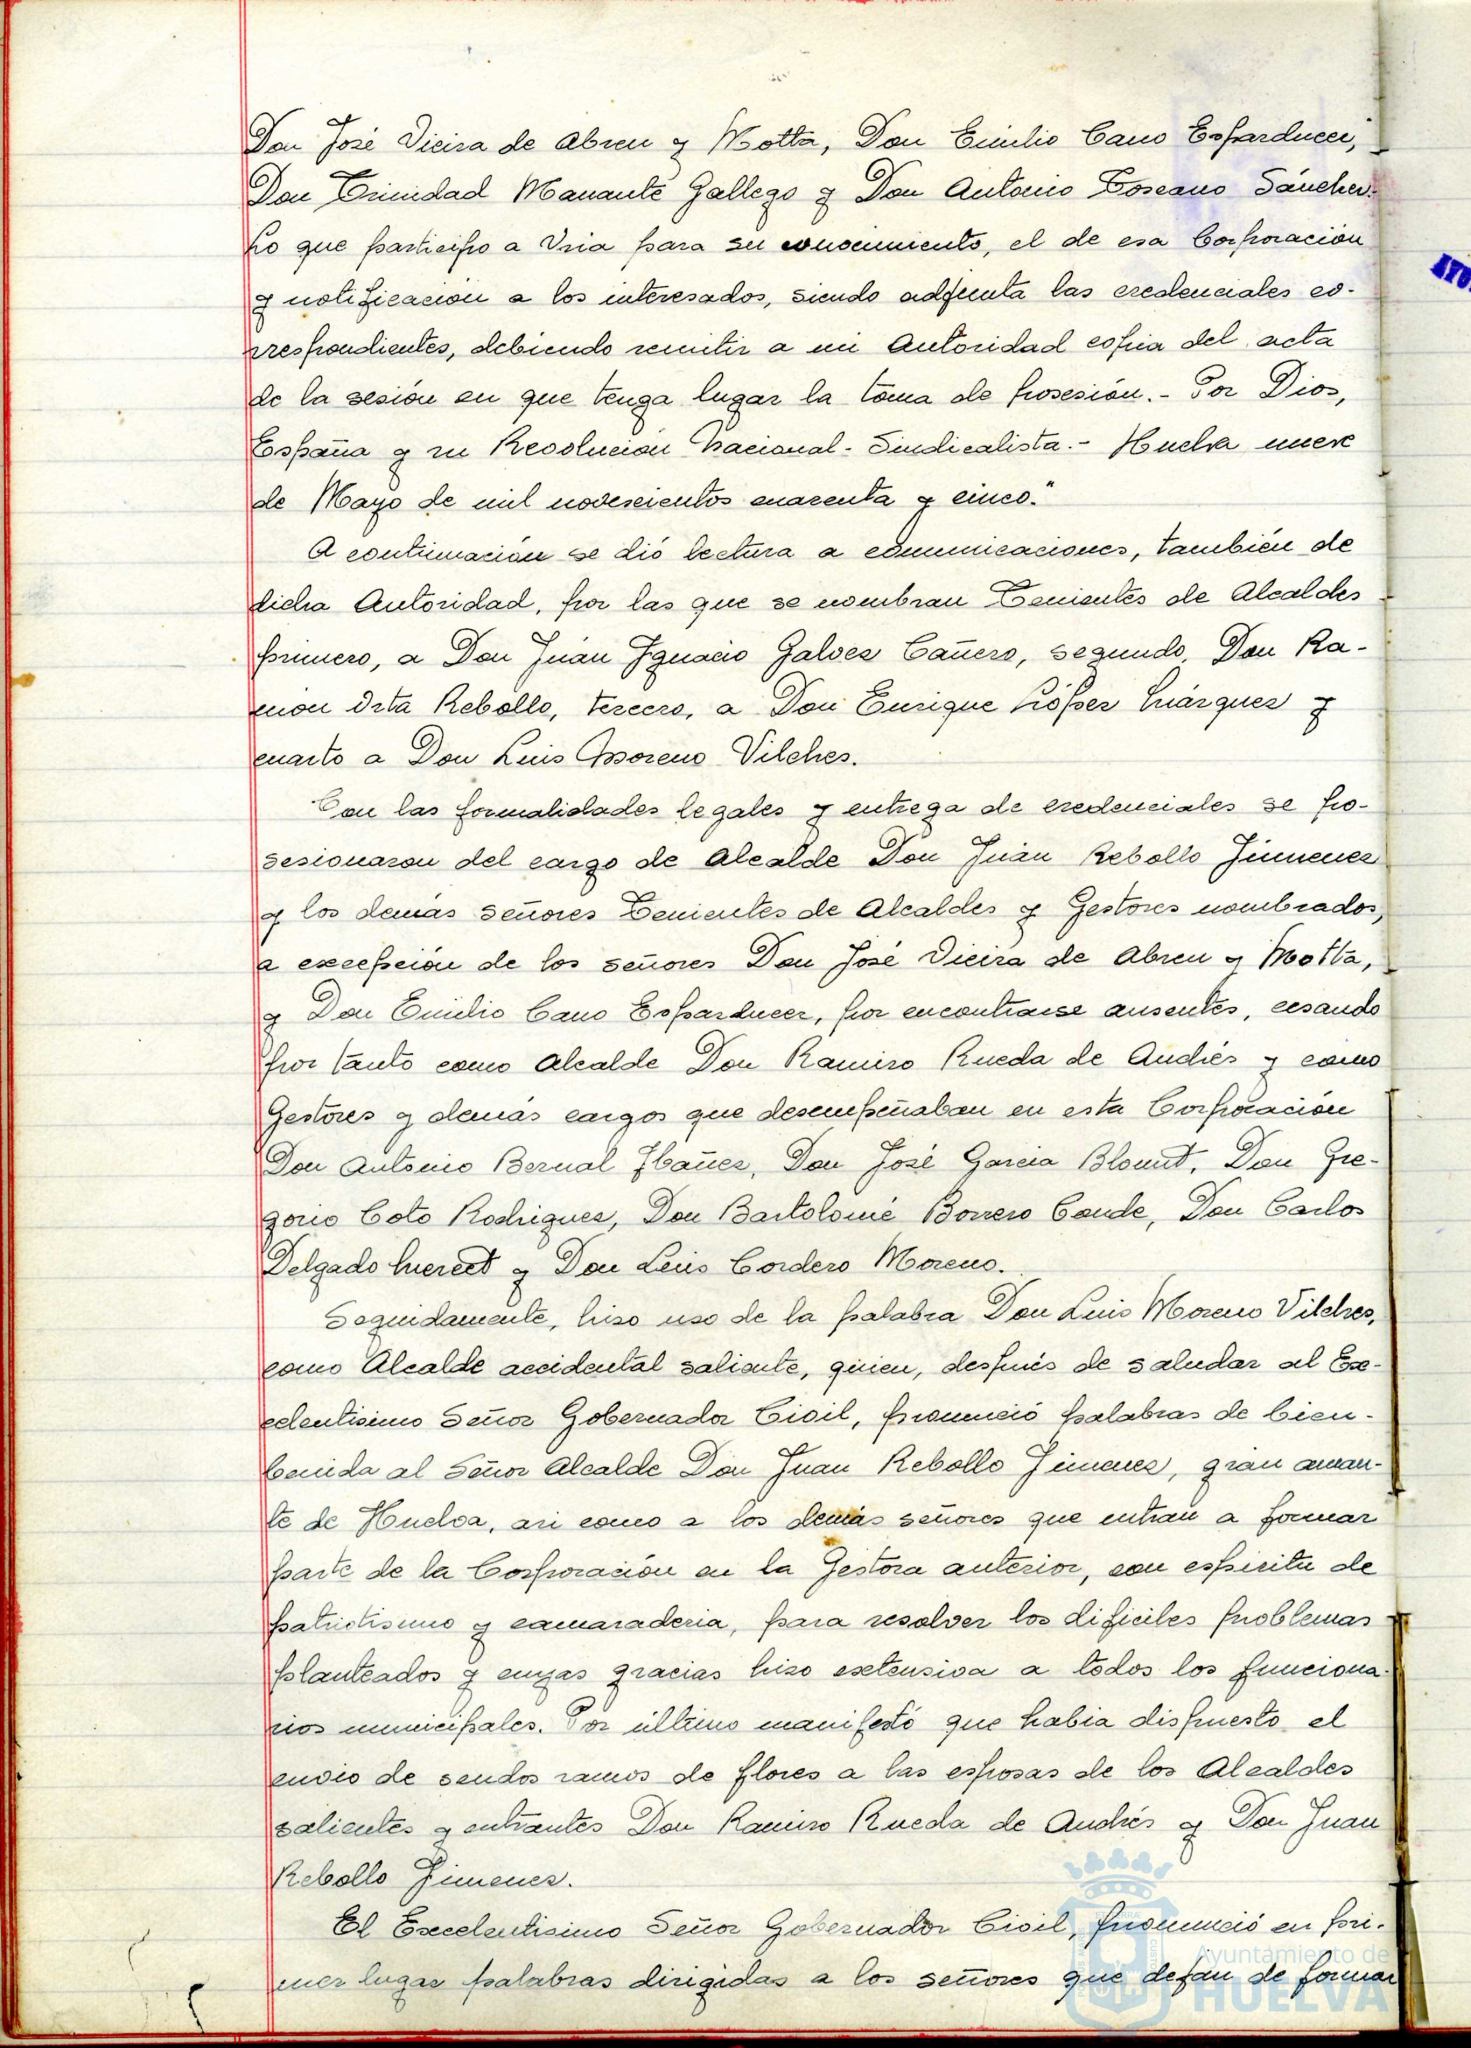 Don José Vieira de Abreu y Motta, Don Emilio Cano Esparducer,
Don Trinidad Manante Gallego y Don Antonio Toscano Sánchez.
Lo que participo a Vsia para su conocimiento, el de esa Corporación
y notificación a los interesados, siendo adjunta las credenciales co-
rrespondientes, debiendo remitir a mi Autoridad copia del acta
de la sesión en que tenga lugar la toma de posesión.- Por Dios,
España y su Revolución Nacional-Sindicalista.- Huelva nueve
de Mayo de mil novescientos cuarenta y cinco."
A continuación se dió lectura a comunicaciones, también de
dicha Autoridad, por las que se nombran Tenientes de Alcaldes
primero, a Don Juán Ignacio Galvez Cañero, segundo, Don Ra-
món Orta Rebollo, tercero, a Don Enrique López Márquez y
cuarto a Don Luis Moreno Vilches.
Con las formalidades legales y entrega de credenciales se po-
sesionaron del cargo de Alcalde Don Juán Rebollo Jimenez
y los demás señores Tenientes de Alcaldes y Gestores nombrados,
a excepción de los señores Don José Vieira de Abreu y Motta,
y Don Emilio Cano Esparducer, por encontrarse ausentes, cesando
por tanto como Alcalde Don Ramiro Rueda de Andrés y como
Gestores y demás cargos que desempeñaban en esta Corporación
Don Antonio Bernal Ibañez, Don José Garcia Blount, Don Gre-
gorio Coto Rodriguez, Don Bartolomé Borrero Conde, Don Carlos
Delgado y Don Luis Cordero Moreno.
Seguidamente, hizo uso de la palabra Don Luis Moreno Vilches,
como Alcalde accidental saliente, quien, después de saludar al Ex-
celentisimo Señor Gobernador Civil, pronunció palabras de bien-
benida al Señor Alcalde Don Juan Rebollo Jimenez, gran aman-
te de Huelva, asi como a los demás señores que entran a formar
parte de la Corporación en la Gestora anterior, con espiritu de
patriotismo y camaraderia, para resolver los dificiles problemas
planteados y cuyas gracias hizo extensiva a todos los funciona-
rios municipales. Por último manifestó que habia dispuesto el
envio de sendos ramos de flores a las esposas de los Alcaldes
salientes y entrantes Don Ramiro Rueda de Andrés y Don Juan
Rebollo Jimenez.
El Excelentisimo Señor Gobernador Civil, pronunció en pri-
mer lugar palabras dirigidas a los señores que dejan de formar
Ayuntamiento de
HUELVA